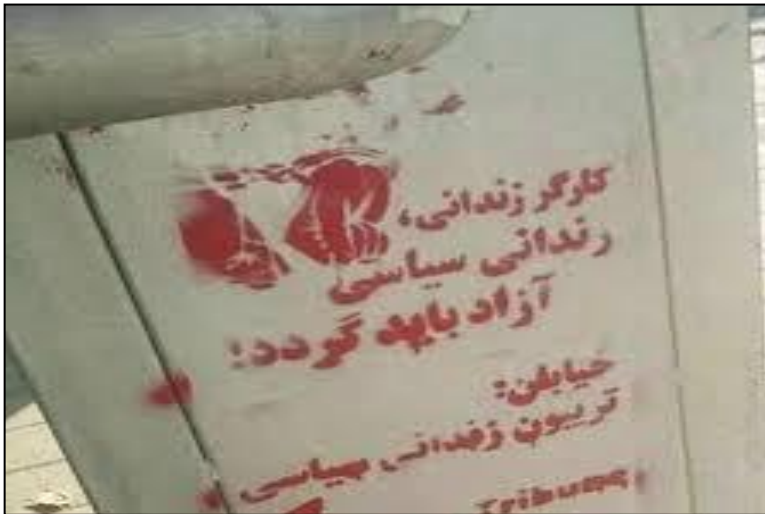 کارگر زندانی،
زندانی سیاسی
آزاد باید گردد!
خیابان:
تریبون زندانی سیاسی
Tribune